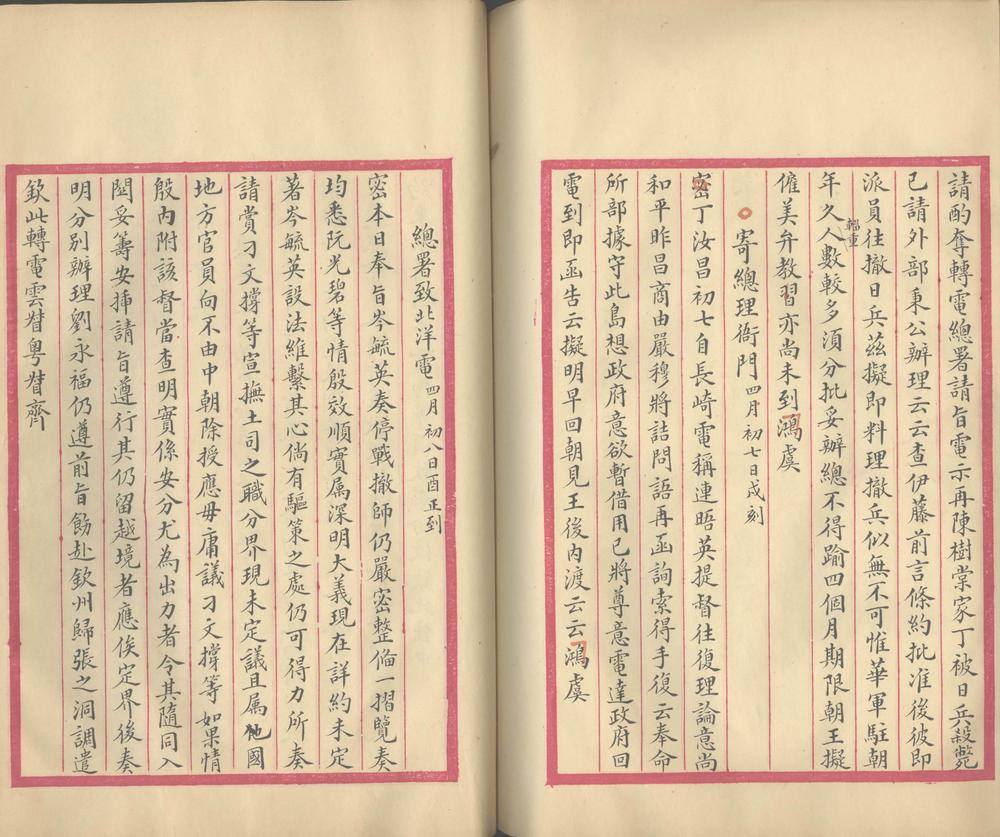 請酌奪轉電總署請旨電示再陳樹棠家丁被日兵殺斃
已請外部秉公辦理云云查伊藤前言條約批准後彼即
派員往撤日兵茲擬即料理撤兵似無不可惟華軍駐朝
年久人數輜重較多須分批妥辦總不得踰四個月期限朝王擬
僱美弁教習亦尚未到鴻虞
寄總理衙門 四月初七日戌刻
密丁汝昌初七自長崎電稱連晤英提督往復理論意尚
和平昨昌商由嚴穆將詰問語再函詢索得手復云奉命
所部據守此島想政府意欲暫借用已將尊意電達政府回
電到即函告云擬明早回朝見王後內渡云云鴻虞
總署致北洋電 四月初八日酉正到
密本日奉旨岑毓英奏停戰撤師仍嚴密整備一摺覽奏
均悉阮光碧等情殷效順實属深明大義現在詳約未定
著岑毓英設法維繫其心倘有驅策之處仍可得力所奏
請賞刁文撐等宣撫土司之職分界現未定議且属他國
地方官員向不由中朝除授應毋庸議刁文撐等如果情
殷內附該督當查明實係安分尤為出力者令其隨同入
關妥籌安插請旨遵行其仍留越境者應俟定界後奏
明分別辦理劉永福仍遵前旨飭赴欽州歸張之洞調遣
欽此轉電雲督粵督齊